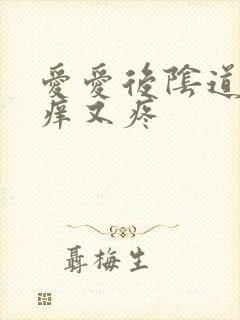 愛愛後陰道
痒又疼
聶梅生